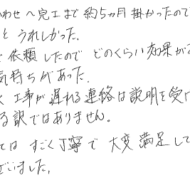 わせへ完工まで約5ヵ月掛かったので
と うれしかった。
で依頼したので どのくらい効果が
気持ちがあった。
く 工事が遅れる連絡は説明を受け
る訳ではありません。
ては すごく丁寧で 大変満足して
ざいました。